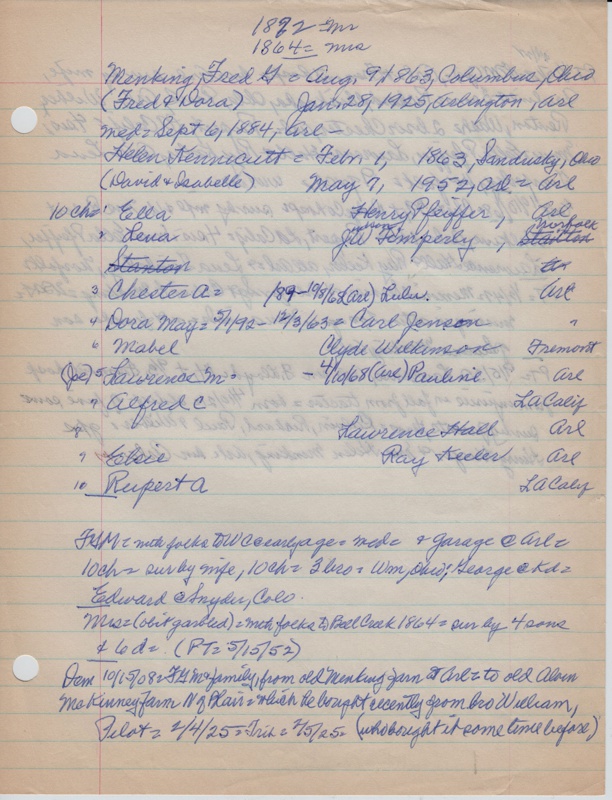 1892 = Mr
1864 = Mrs
Menking, Fred G = Aug, 9, 1863, Columbus, Ohio
(Fred & Dora) Jan 28, 1925, Arlington, Arl
med = Sept 6, 1884, Arl -
Helen Kennicutt = Febr 1, 1863, Sandusky, Ohio
(David & Isabelle) May 7, 1952, Arl = Arl
10 ch = Ella Henry Pfeiffer, Arl
" Lena JW Timperly, Norfolk
Stanton
3 Chester A = 189 - 10/8/6 (Arl) Lulu. Arl
4 Dora May = 5/1/92 - 12/3/63 = Carl Jenson "
6 Mabel Clyde Wilkinson Fremont
(Joe) 5 Lawrence M = - 4/10/68 (Arl) Pauline Arl
7 Alfred C LA Calif
8 Lawrence Hall Arl
9 Elsie Ray Keeler Arl
10 Rupert A LA Calif
FGM = with folks to WC @ early age = med = & garage @ Arl =
10 ch = sur by wife, 10 ch = 3 bro = Wm, Ohio; George @ Kd =
Edward @ Snyder, Colo.
Mrs = (obit garbled) = with folks to Bell Creek 1864 = sur by 4 sons
& 6 d = (FT = 5/15/52)
Dem 10/15/08 = FG M & family, from old Menking farm at Arl = to old Alvin
McKinney farm N of Blair = which he bought recently from bro William,
Pilot = 2/4/25 = Trib = 2/5/25 = (who bought it some time before)